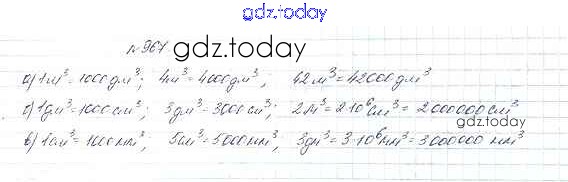 gdz.today
№967.
gdz.today
а) 1м³ = 1000 дм³; 4м³ = 4000 дм³; 42 м³ = 42000 дм³
б) 1дм³ = 1000 см³; 3дм³ = 3000 см³; 2м³ = 2·10⁶ см³ = 2000000 см³
gdz.today
в) 1см³ = 1000 мм³; 5см³ = 5000 мм³; 3дм³ = 3·10⁶ мм³ = 3000000 мм³